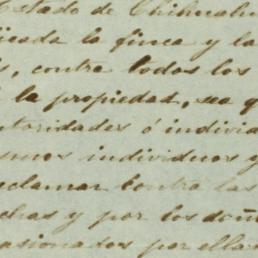 Estado de Chihuahu
la finca y la
contra todos los
la propiedad, sea q
autoridades ó individ
smos individuos y
eclamar contra las
chas y por los dañ
asionados por ellas